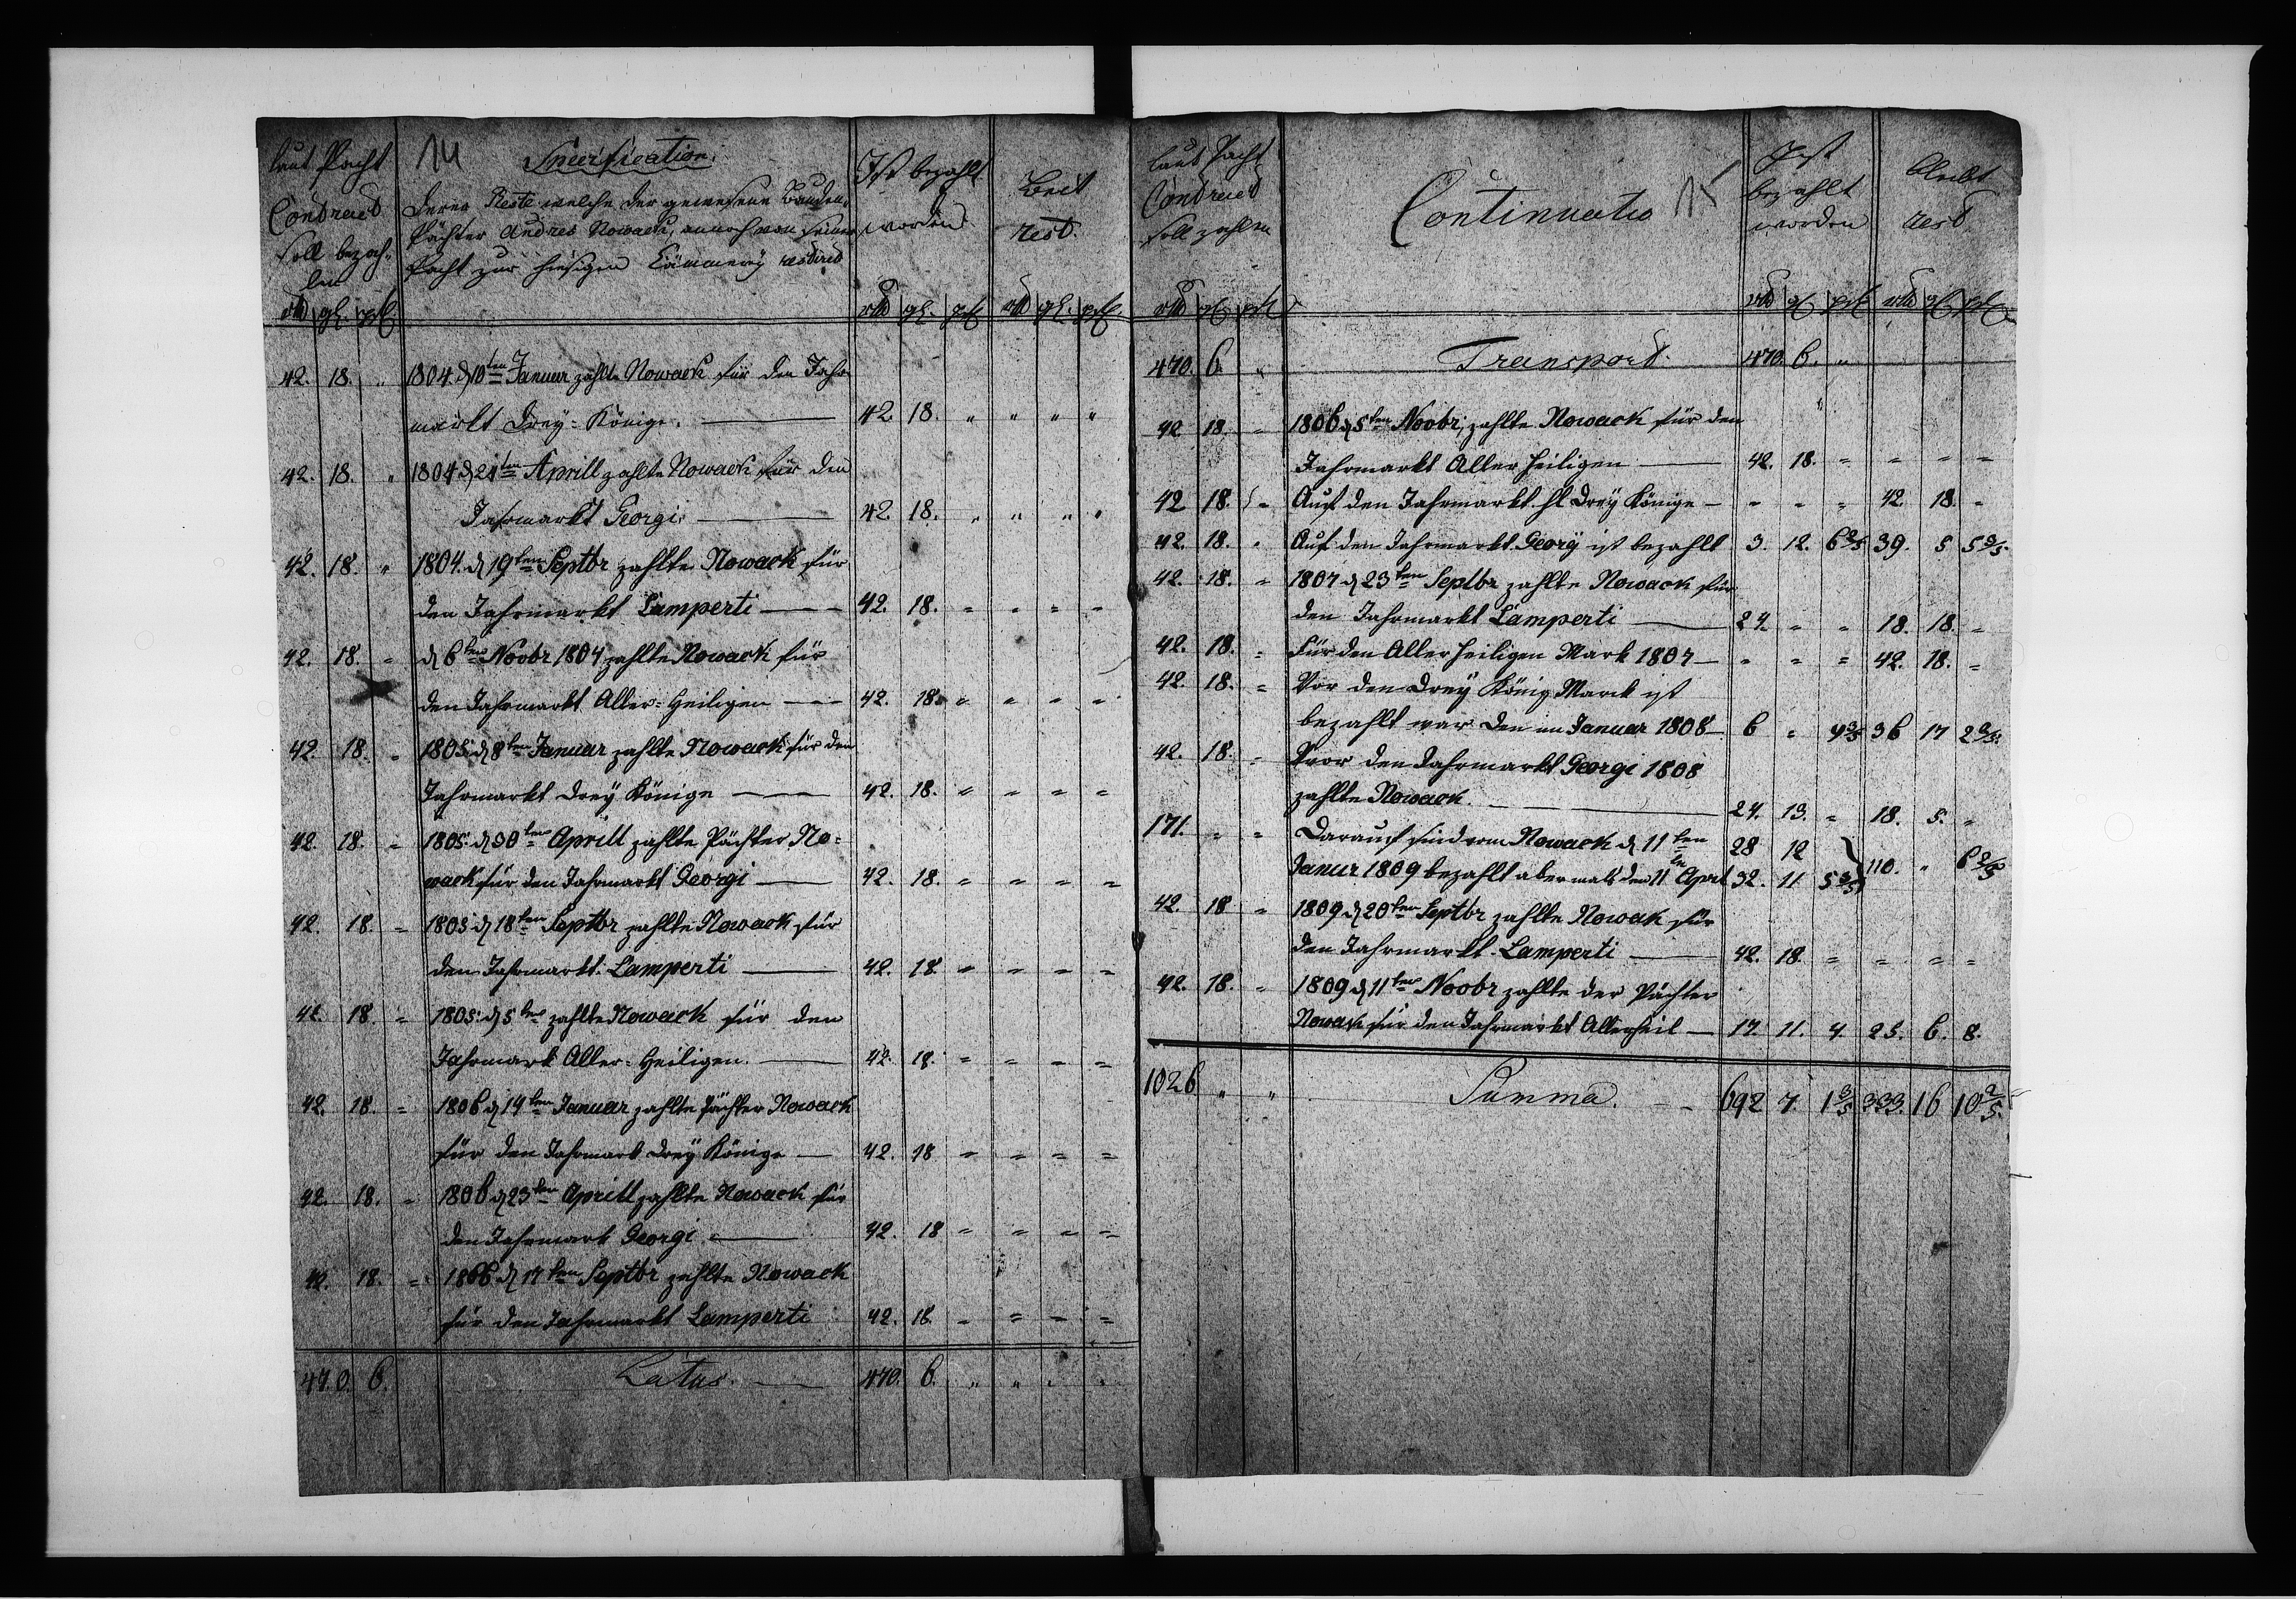 laut Pacht
Contract
soll bezah-
len
rtl gl. pf.
14
Specification.
Derer Reste welche der gewesene Bauden-
Pächter Andres Nowack, annoch von seiner
Pacht zur hiesigen Cämmery restired
Ist bezahlt
worden
rtl gl. pf.
Bleit
rest.
rtl gl. pf.
42. 18. " 1804 d 10ten Januar zahlte Nowack für den Jahr
markt Drey-Könige. — 42. 18. " " " "
42. 18. " 1804 d 24ten Aprill zahlte Nowack für den
Jahrmarkt Georgi. — 42. 18. " " " "
42. 18. " 1804. d 19ten Septbr zahlte Nowack für
den Jahrmarkt Lamperti — 42. 18. " " " "
42. 18. " d 6ten Novbr 1804 zahlte Nowack für
den Jahrmarkt Aller-Heiligen — 42. 18. " " " "
42. 18. " 1805. d 8ten Januar zahlte Nowack für den
Jahrmarkt Drey Könige — 42. 18. " " " "
42. 18. " 1805. d 30ten Aprill zahlte Pächter No-
wack für den Jahrmarkt Georgi — 42. 18. " " " "
42. 18. " 1805 d 18ten Septbr zahlte Nowack für
den Jahrmarkt Lamperti — 42. 18. " " " "
42. 18. " 1805. d 5ten zahlte Nowack für den
Jahrmark Aller-Heiligen. — 42. 18. " " " "
42. 18. " 1806 d 14ten Januar zahlte Pächter Nowack
für den Jahrmark Drey Könige — 42. 18 " " " "
42. 18. " 1806 d 23ten Aprill zahlte Nowack für
den Jahrmark Georgi — 42. 18 " " " "
42. 18. " 1806 d 17ten Septbr zahlte Nowack
für den Jahrmarkt Lamperti 42. 18. " " " "
470. 6. Latus. — 470. 6. " " " "
laut Pacht
Contract
soll zahlen
rtl gl pf
Continuatio 15
Ist
bezahlt
worden
rtl gl pf
bleibt
rest.
rtl gl pf
470. 6. " Transport. 470. 6. "
42 18. " 1806 d 5ten Novbr, zahlte Nowack für den
Jahrmarkt Aller Heiligen — 42. 18. " " " "
42 18. " Auf den Jahrmarkt hl Drey Könige — " " " 42. 18. "
42. 18. " Auf den Jahrmarkt Georÿ ist bezahlt 3. 12. 6 2/5 39. 5 5 3/5.
42. 18. " 1807 d 23ten Septbr zahlte Nowack für
den Jahrmarkt Lamperti — 24. " " 18. 18. "
42. 18. " Für den Aller Heiligen Mark 1807 — " " " 42. 18. "
42. 18. " Vor den Drey König Marck ist
bezahlt war den im Januar 1808 — 6 " 9 3/5 36 17 2 2/5.
42. 18. " Vvor den Jahrmarkt Georgi 1808
zahlte Nowack. — 24. 13. " 18. 5. "
171. " " Darauf sind vom Nowack d 11ten 28 12
Janur 1809 bezahlt abermals den 11ten April 32. 11 5 3/5 } 110. " 6 2/5
42. 18 " 1809 d 20ten Septbr zahlte Nowak für
den Jahrmarkt Lamperti — 42. 18. " " " "
42. 18. " 1809 d 11ten Novbr zahlte der Pächter
Nowack für den Jahrmarkt Allerheil — 17. 11. 4. 25. 6. 8.
1026 " " Summa. — 692 7. 1 3/5 333. 16 10 2/5.